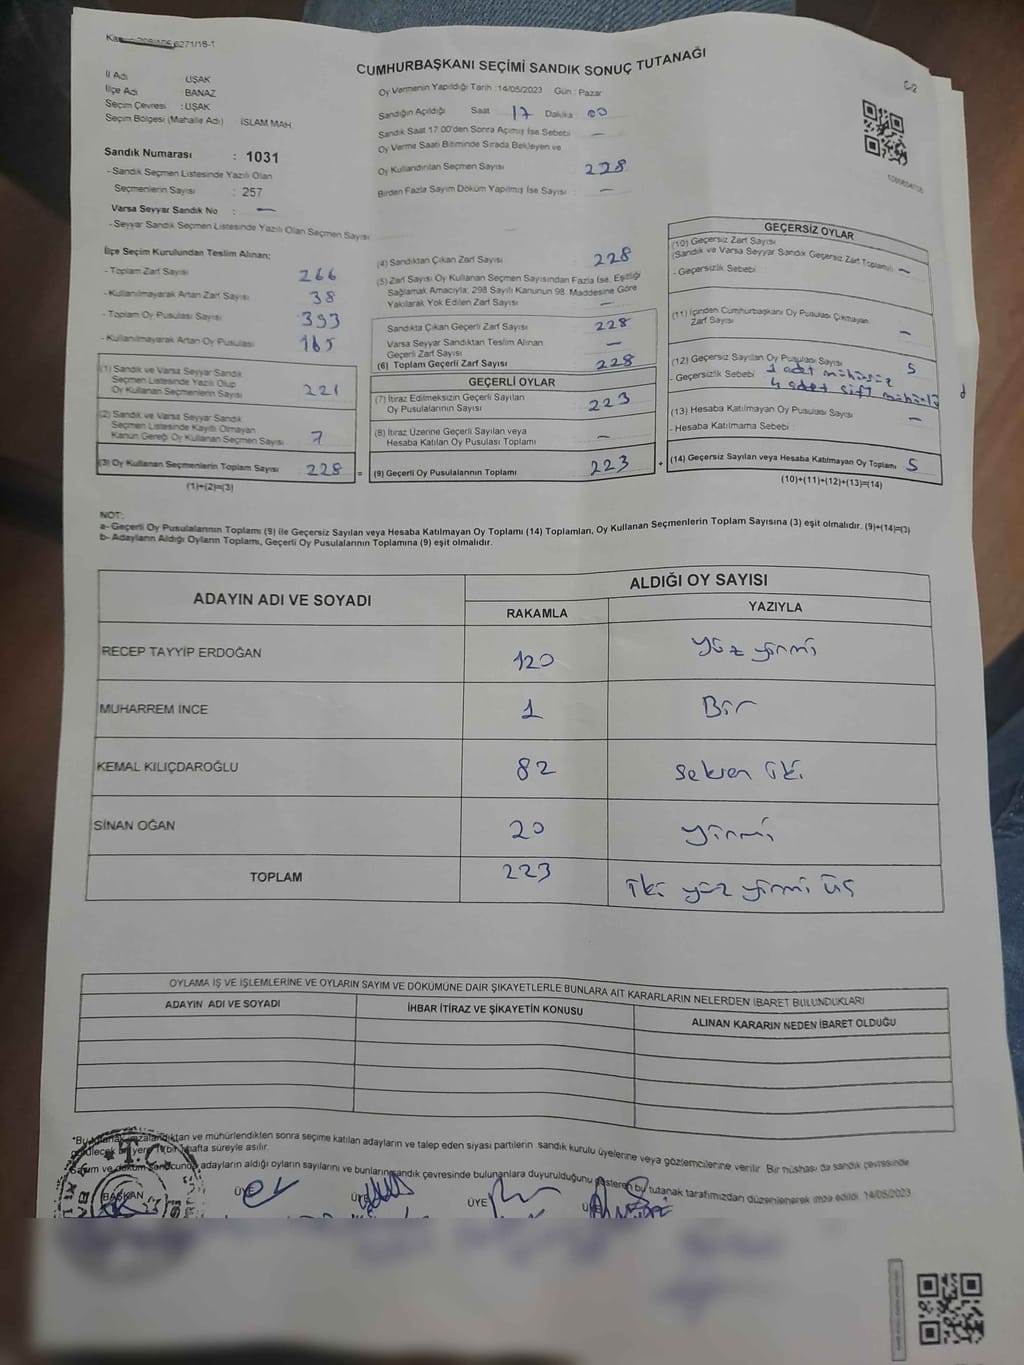 6271/18-1
CUMHURBAŞKANI SEÇİMİ SANDIK SONUÇ TUTANAĞI
İl Adı UŞAK
İlçe Adı BANAZ
Seçim Çevresi : UŞAK
Seçim Bölgesi (Mahalle Adı) İSLAM MAH.
Sandık Numarası : 1031
- Sandık Seçmen Listesinde Yazılı Olan
Seçmenlerin Sayısı : 257
Varsa Seyyar Sandık No : —
- Seyyar Sandık Seçmen Listesinde Yazılı Olan Seçmen Sayısı
Oy Vermenin Yapıldığı Tarih : 14/05/2023 Gün : Pazar
Sandığın Açıldığı Saat 17 Dakika : 00
Sandık Saat 17.00'den Sonra Açılmış İse Sebebi —
Oy Verme Saati Bitiminde Sırada Bekleyen ve
Oy Kullandırılan Seçmen Sayısı 228
Birden Fazla Sayım Döküm Yapılmış İse Sayısı : —
İlçe Seçim Kurulundan Teslim Alınan;
- Toplam Zarf Sayısı 266
- Kullanılmayarak Artan Zarf Sayısı 38
- Toplam Oy Pusulası Sayısı 393
- Kullanılmayarak Artan Oy Pusulası 165
(1) Sandık ve Varsa Seyyar Sandık
Seçmen Listesinde Yazılı Olup
Oy Kullanan Seçmenlerin Sayısı 221
(2) Sandık ve Varsa Seyyar Sandık
Seçmen Listesinde Kayıtlı Olmayan
Kanun Gereği Oy Kullanan Seçmen Sayısı 7
(3) Oy Kullanan Seçmenlerin Toplam Sayısı 228 =
(1)+(2)=(3)
(4) Sandıktan Çıkan Zarf Sayısı 228
(5) Zarf Sayısı Oy Kullanan Seçmen Sayısından Fazla İse, Eşitliği
Sağlamak Amacıyla; 298 Sayılı Kanunun 98. Maddesine Göre
Yakılarak Yok Edilen Zarf Sayısı —
Sandıkta Çıkan Geçerli Zarf Sayısı 228
Varsa Seyyar Sandıktan Teslim Alınan
Geçerli Zarf Sayısı —
(6) Toplam Geçerli Zarf Sayısı 228
GEÇERLİ OYLAR
(7) İtiraz Edilmeksizin Geçerli Sayılan
Oy Pusulalarının Sayısı 223
(8) İtiraz Üzerine Geçerli Sayılan veya
Hesaba Katılan Oy Pusulası Toplamı —
(9) Geçerli Oy Pusulalarının Toplamı 223 +
GEÇERSİZ OYLAR
(10) Geçersiz Zarf Sayısı
(Sandık ve Varsa Seyyar Sandık Geçersiz Zarf Toplamı) —
- Geçersizlik Sebebi
(11) İçinden Cumhurbaşkanı Oy Pusulası Çıkmayan
Zarf Sayısı —
(12) Geçersiz Sayılan Oy Pusulası Sayısı 5
- Geçersizlik Sebebi 1 adet mühürsüz
4 adet çift mühürlü
(13) Hesaba Katılmayan Oy Pusulası Sayısı —
- Hesaba Katılmama Sebebi
(14) Geçersiz Sayılan veya Hesaba Katılmayan Oy Toplamı 5
(10)+(11)+(12)+(13)=(14)
NOT:
a- Geçerli Oy Pusulalarının Toplamı (9) ile Geçersiz Sayılan veya Hesaba Katılmayan Oy Toplamı (14) Toplamları, Oy Kullanan Seçmenlerin Toplam Sayısına (3) eşit olmalıdır. (9)+(14)=(3)
b- Adayların Aldığı Oyların Toplamı, Geçerli Oy Pusulalarının Toplamına (9) eşit olmalıdır.
ADAYIN ADI VE SOYADI ALDIĞI OY SAYISI
RAKAMLA YAZIYLA
RECEP TAYYİP ERDOĞAN 120 yüz yirmi
MUHARREM İNCE 1 Bir
KEMAL KILIÇDAROĞLU 82 seksen iki
SİNAN OĞAN 20 yirmi
TOPLAM 223 iki yüz yirmi üç
OYLAMA İŞ VE İŞLEMLERİNE VE OYLARIN SAYIM VE DÖKÜMÜNE DAİR ŞİKAYETLERLE BUNLARA AİT KARARLARIN NELERDEN İBARET BULUNDUKLARI
ADAYIN ADI VE SOYADI İHBAR İTİRAZ VE ŞİKAYETİN KONUSU ALINAN KARARIN NEDEN İBARET OLDUĞU
*Bu tutanak imzalandıktan ve mühürlendikten sonra seçime katılan adayların ve talep eden siyasi partilerin sandık kurulu üyelerine veya gözlemcilerine verilir. Bir nüshası da sandık çevresinde
görülecek bir yere 1 bir hafta süreyle asılır.
Sayım ve döküm sonucunda adayların aldığı oyların sayılarını ve bunların sandık çevresinde bulunanlara duyurulduğunu gösteren bu tutanak tarafımızdan düzenlenerek imza edildi. 14/05/2023
T.C.
BAŞKAN ÜYE ÜYE ÜYE